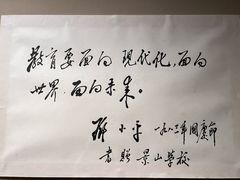 教育要面向现代化,面向
世界,面向未来。
邓小平 一九八三年国庆节
书赠景山学校